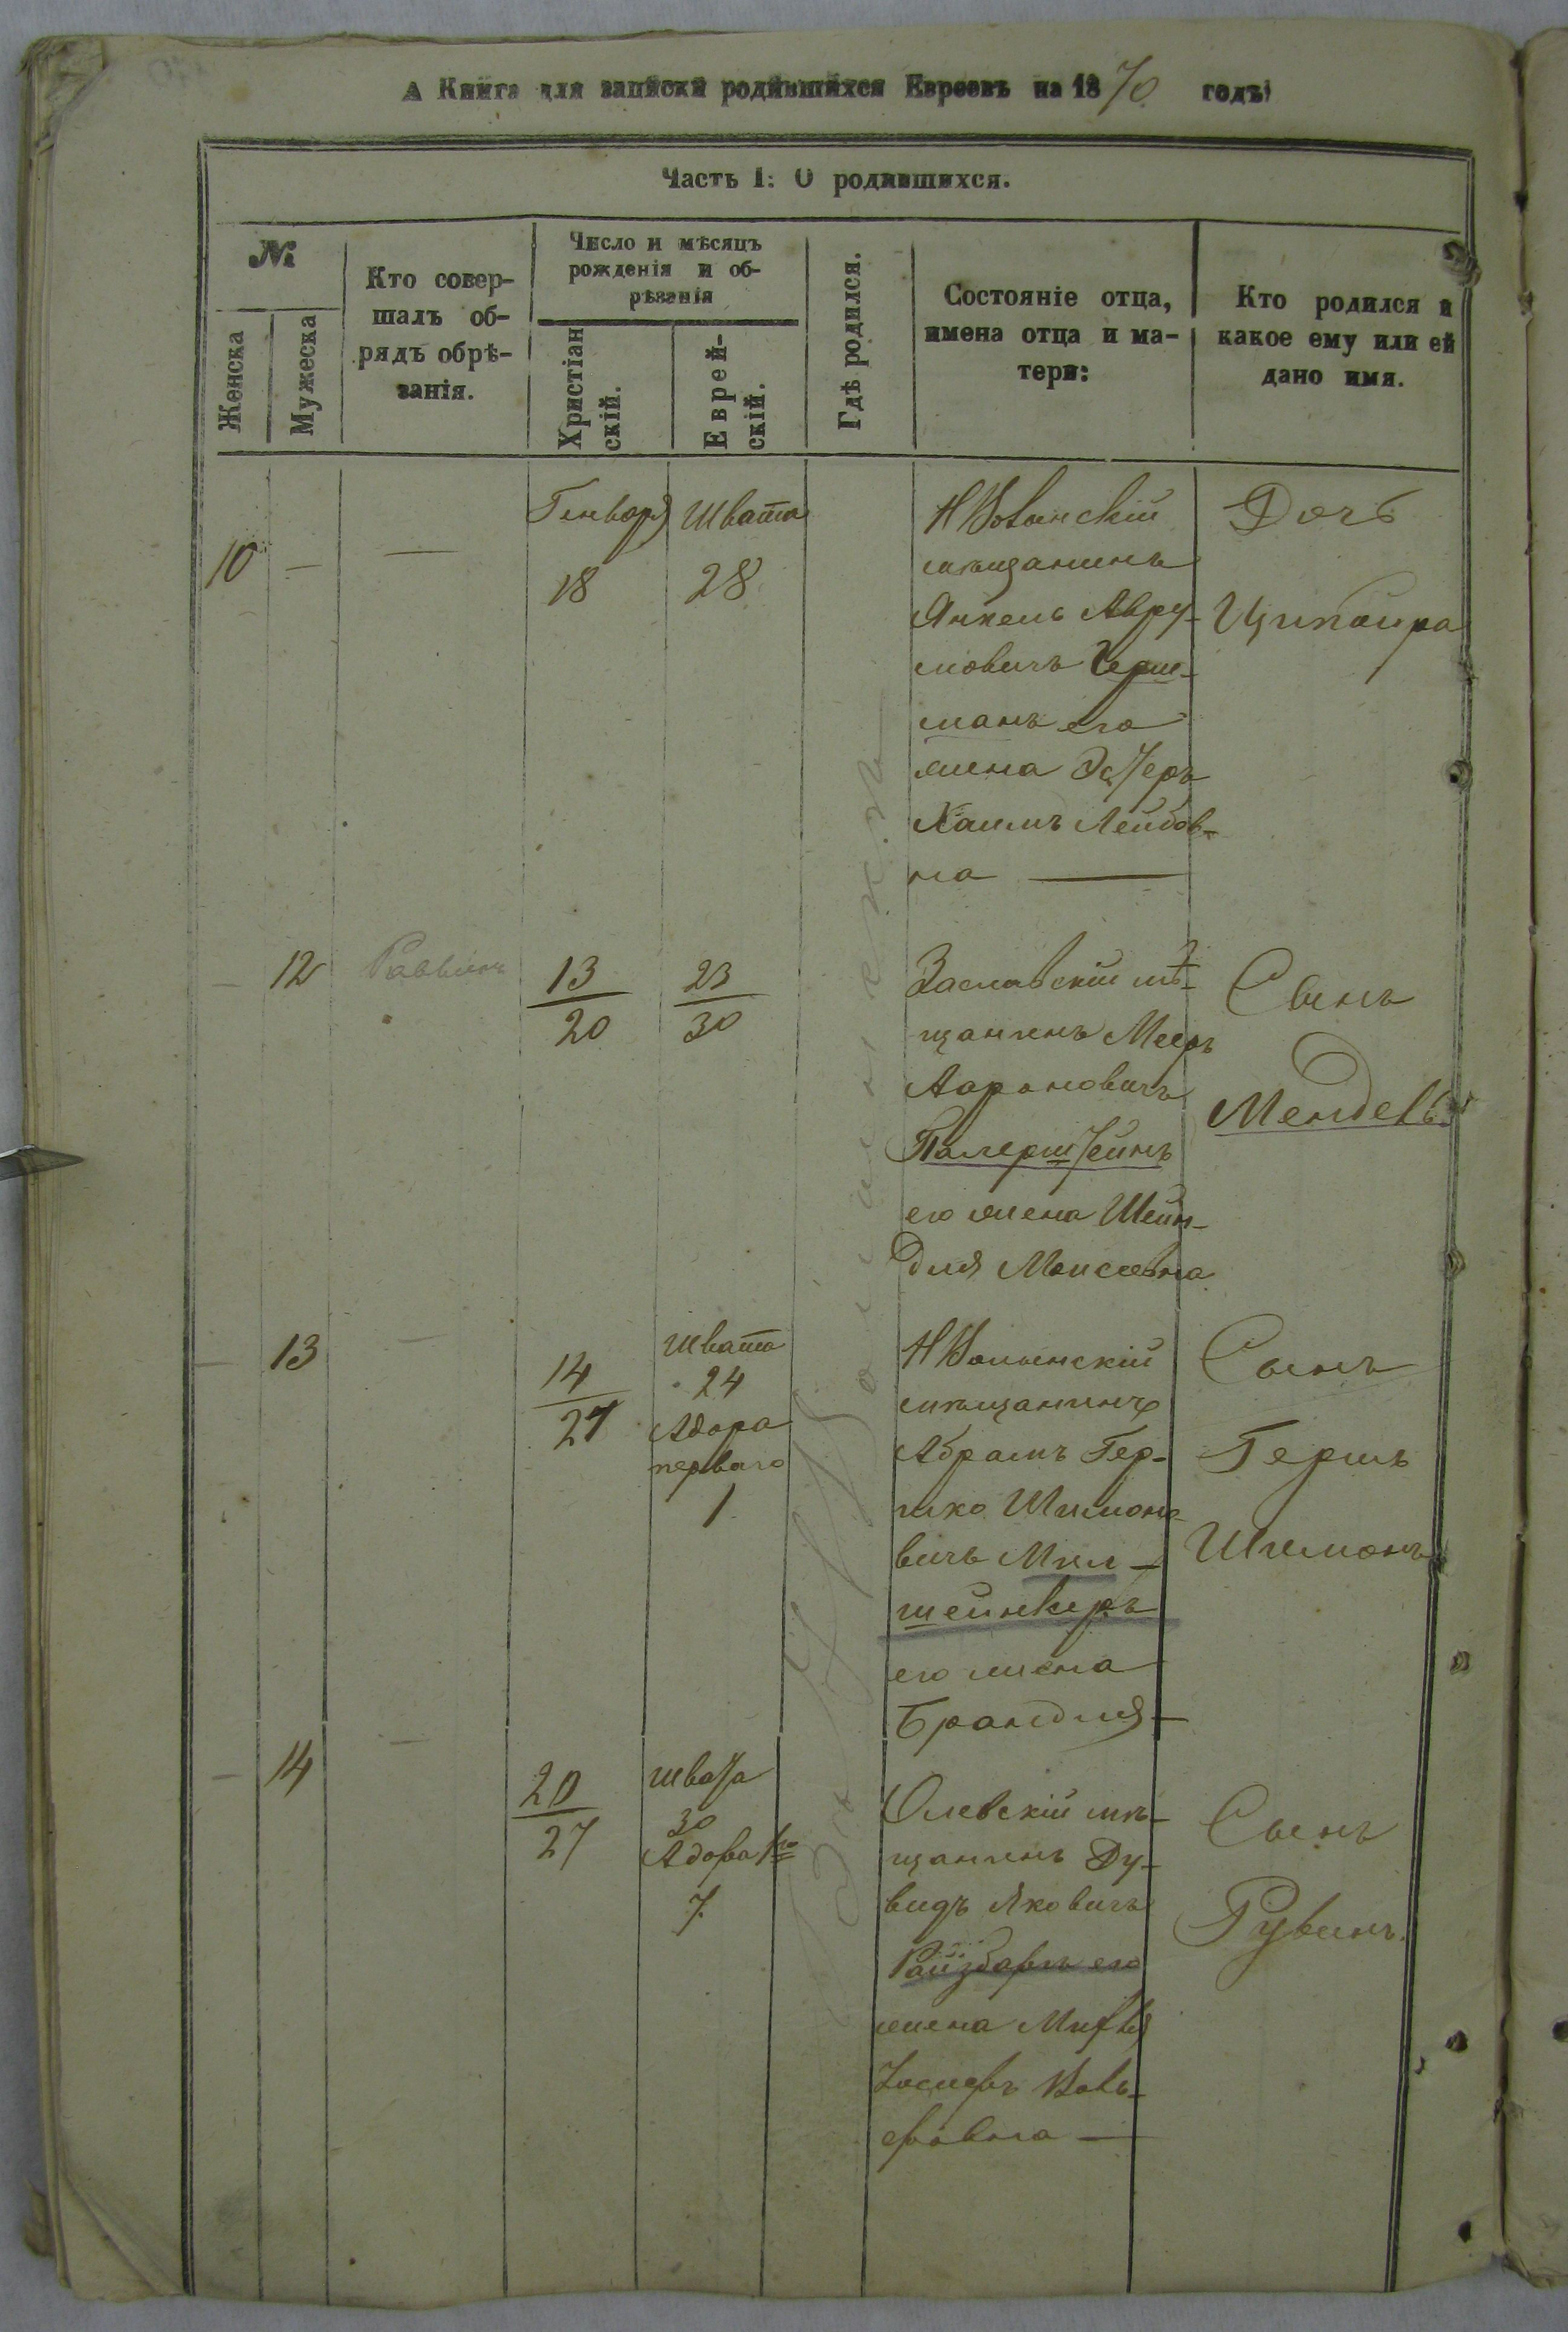 А Книга для записки родившихся Евреевъ на 1870 годъ
Часть I: О родившихся.
№
Женска
Мужеска
Кто совер-
шалъ об-
рядъ обрѣ-
занія.
Число и мѣсяцъ
рожденія и об-
рѣзанія
Христіан
скій.
Еврей-
скій.
Гдѣ родился.
Состояніе отца,
имена отца и ма-
тери:
Кто родился и
какое ему или ей
дано имя.
10
—
—
Генваря
18
Швата
28
НВолынскій
мѣщанинъ
Янкель Авру-
мовичъ Герш-
манъ его
жена Эстеръ
Хаимъ Лейбов-
на —
Дочь
Ципойра
—
12
Раввинъ
13
20
23
30
Заславскій мѣ-
щанинъ Мееръ
Аароновичъ
Палерштейнъ
его жена Шейн-
для Моисеевна
Сынъ
Мендель
—
13
—
14
21
Швата
24
Адора
перваго
1
НВолынскій
мѣщанинъ
Абрамъ Гер-
шко Шимоно-
вичъ Мил-
шейнкеръ
его жена
Брандля —
Сынъ
Гершъ
Шимонъ
—
14
—
20
27
Швата
30
Адора 1го
7.
Олевскій мѣ-
щанинъ Ду-
видъ Яковичъ
Ройзбаръ его
жена
Іосифъ Воль-
фовна —
Сынъ
Рувинъ.